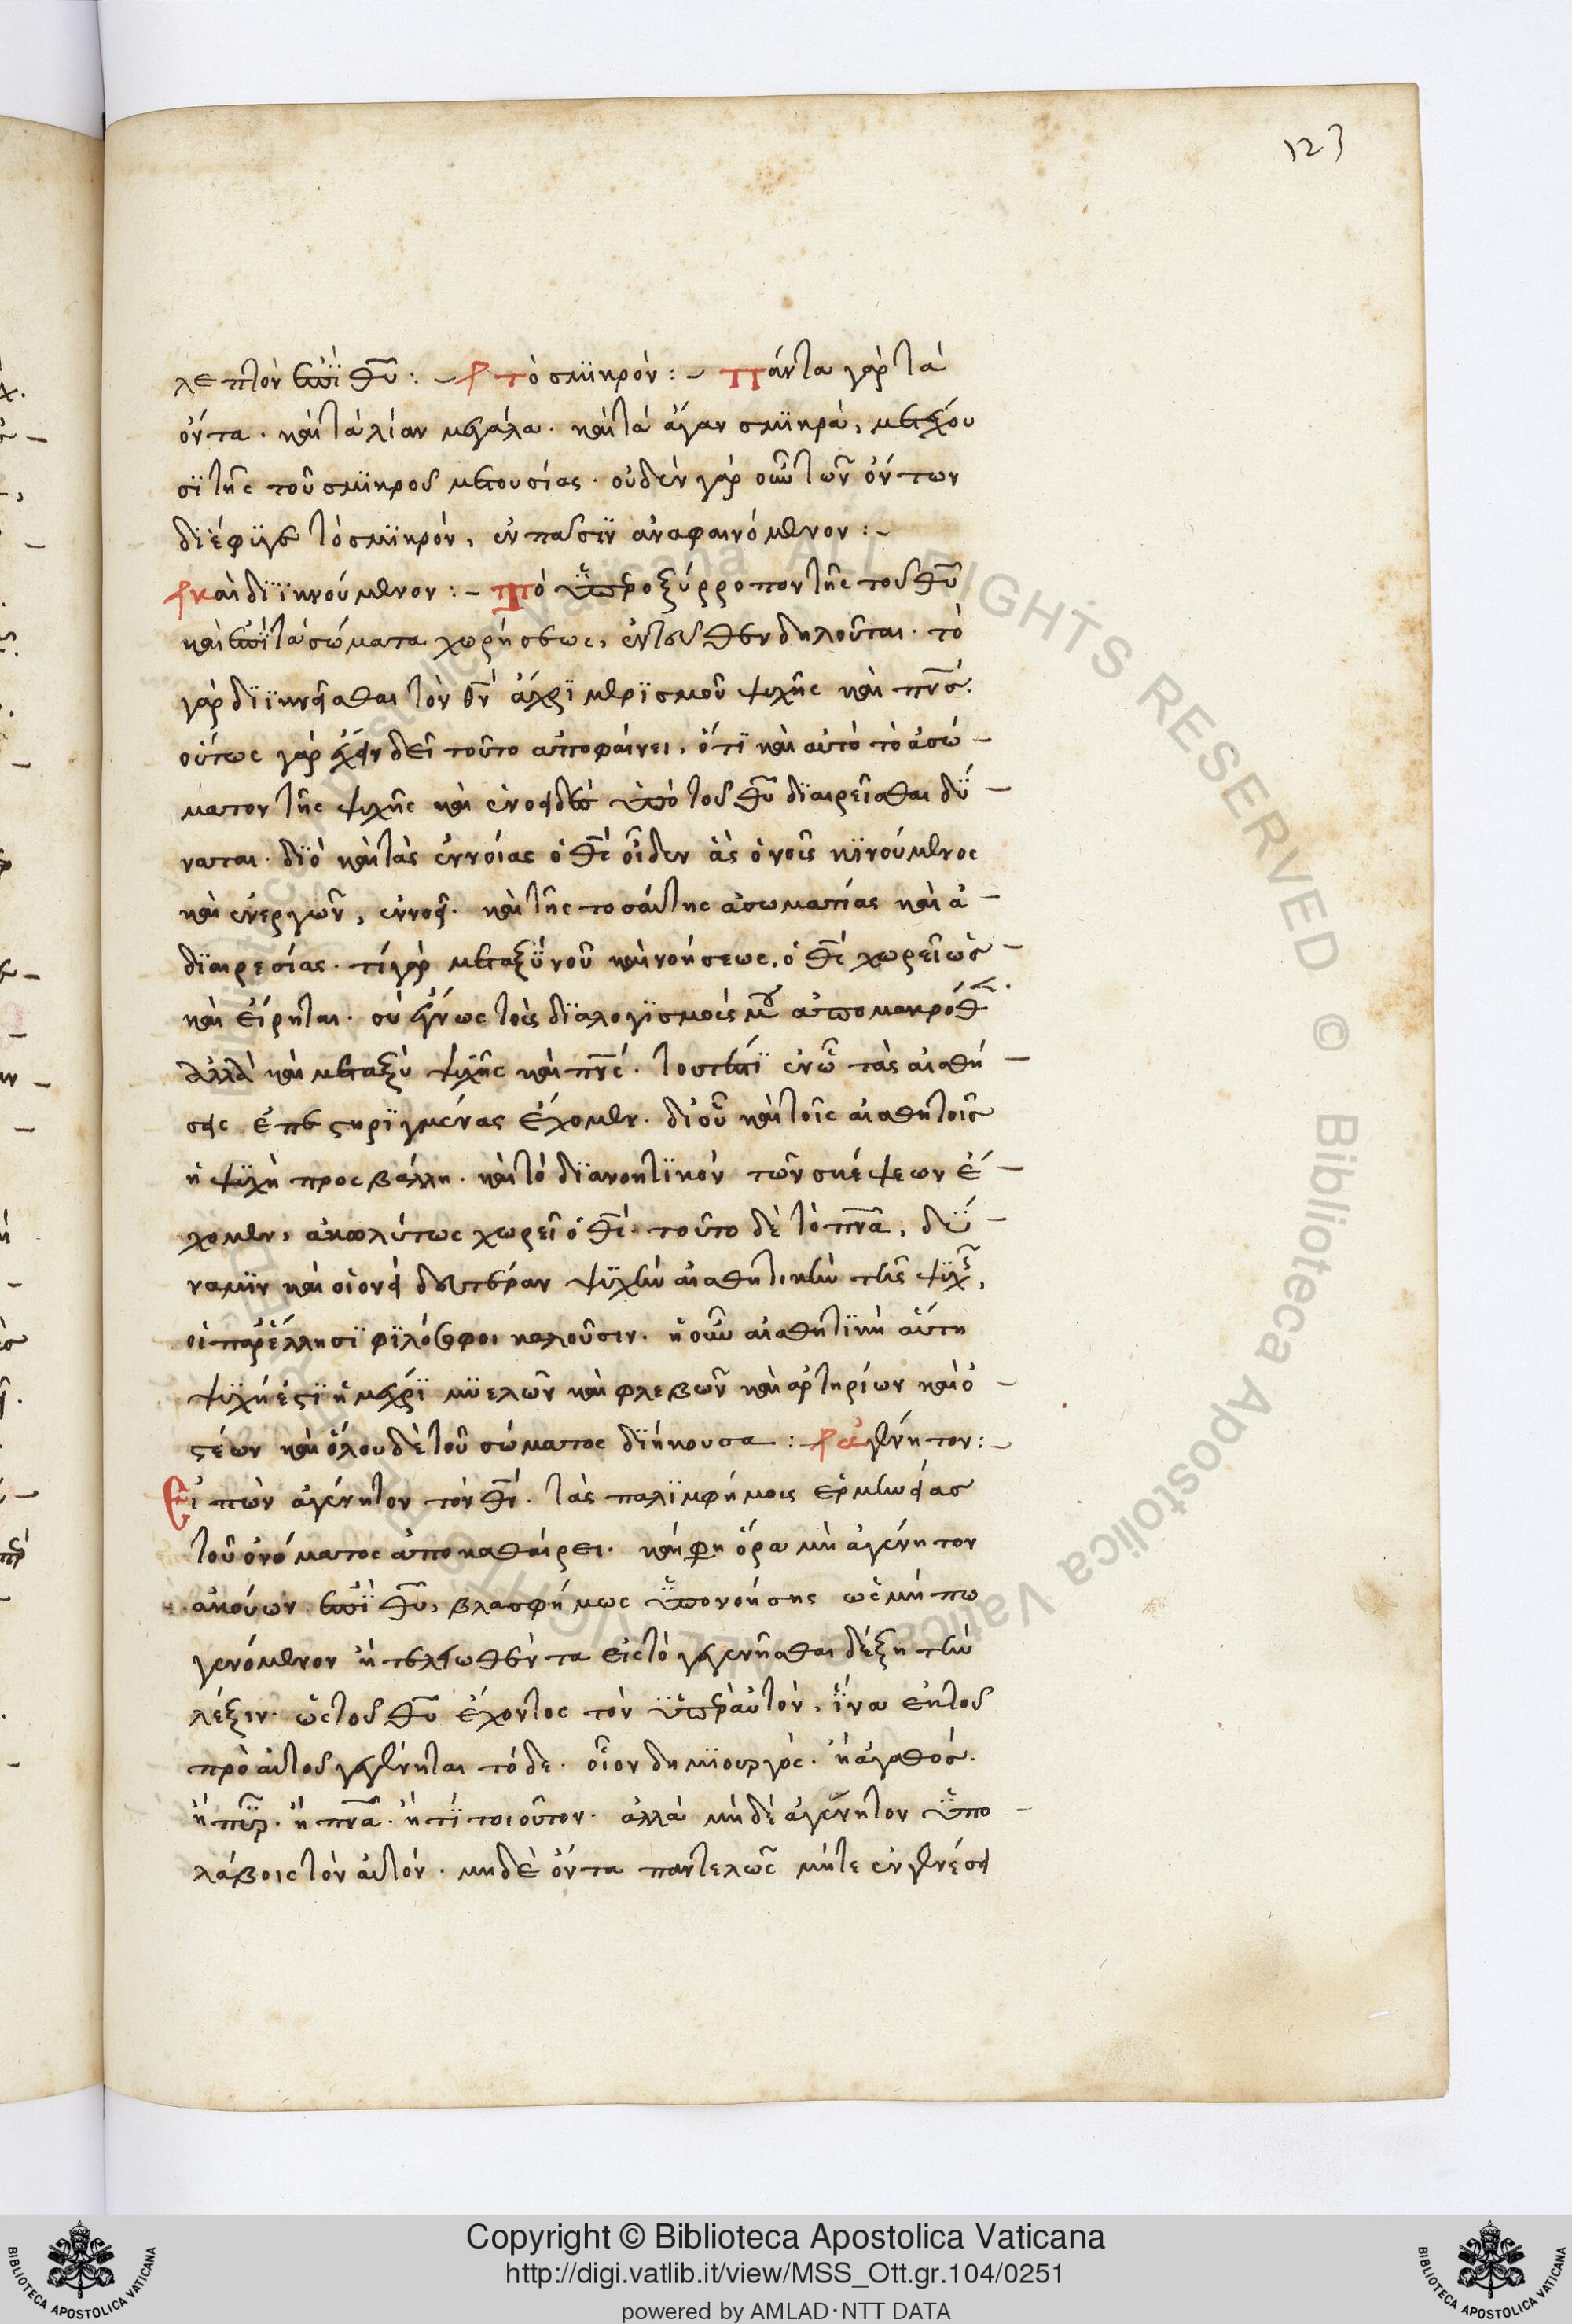 123
λεπτὸν ἐπὶ θυ: – τὸ σμϊκρὸν: – Πάντα γὰρ τὰ
ὄντα. καὶ τὰ λίαν μεγάλα. καὶ τὰ ἄγαν σμϊκρὰ, μετέχου
σϊ τῆς τοῦ σμϊκροῦ μετουσίας. οὐδὲν γὰρ οὖν τῶν ὄντων
δϊέφϋγε τὸ σμϊκρὸν, ἐν πᾶσϊν ἀναφαινόμενον: –
καὶ δϊϊκνούμενον: – Τὸ ὑπὲρ ὀξύρροπον τῆς τοῦ θυ
καὶ ἐπὶ τὰ σώματα χωρήσεως, ἐντεῦθεν δηλοῦται. τὸ
γὰρ δϊϊκνεῖσθαι τὸν θν ἄχρϊ μερϊσμοῦ ψυχῆς καὶ πνς.
οὕτως γὰρ δεῖ τοῦτο ἀποφαίνει, ὅτϊ καὶ αὐτὸ τὸ ἀσώ –
ματον τῆς ψυχῆς καὶ ἑνοειδὲς ὑπὸ τοῦ θυ δϊαιρεῖσθαι δύ –
ναται. δϊὸ καὶ τὰς ἐννοίας ὁ θς οἶδεν ἃς ὁ νοῦς κϊνούμενος
καὶ ἐνεργῶν, ἐννοεῖ. καὶ τῆς τοσαύτης ἀσωματίας καὶ ἀ –
δϊαιρεσίας. τί γὰρ μεταξὺ νοῦ καὶ νοήσεως, ὁ θς χωρεῖ ὡς –
καὶ εἴρηται. σὺ ἔγνως τοὺς δϊαλογϊσμούς μου ἀπὸ μακρόθεν.
ἀλλὰ καὶ μεταξὺ ψυχῆς καὶ πνς. τουτέστϊ ἐν ὧ τὰς αἰσθή –
σεις ἐπεστηρϊγμένας ἔχομεν. δι' οὗ καὶ τοῖς αἰσθητοῖς
ἡ ψϋχὴ προσβάλλη. καὶ τὸ δϊανοητϊκὸν τῶν σκέψεων ἔ –
χομεν, ἀκωλύτως χωρεῖ ὁ θς. τοῦτο δὲ τὸ πνα, δύ –
ναμϊν καὶ οἱονεὶ δευτέραν ψϋχὴν αἰσθητικὴν τῆς ψϋχῆς,
οἱ παρ' ἕλλησϊ φϊλόσοφοι καλοῦσιν. ἡ οὖν αἰσθητϊκὴ αὕτη
ψϋχή ἐστϊ ἡ μέχρϊ μϋελῶν καὶ φλεβῶν καὶ ἀρτηρίων καὶ ὀ –
στέων καὶ ὅλου δὲ τοῦ σώματος δϊήκουσα: ἀγένητον: –
Εἰπὼν ἀγένητον τὸν θν. τὰς παλϊμφήμους ἑρμηνείας
τοῦ ὀνόματος ἀποκαθαίρει. καί φη ὅρα μὴ ἀγένητον
ἀκούων ἐπὶ θυ, βλασφήμως ὑπονοήσης ὡς μήπω
γενόμενον ἢ τελειωθέντα εἰς τὸ γεγενῆσθαι δέξη τὴν
λέξιν. ὡς τοῦ θυ ἔχοντος τὸν ὑπὲρ αὐτὸν, ἵνα ἐκ τοῦ
πρὸ αὐτοῦ γεγένηται τόδε. οἷον δημϊουργὸς. ἢ ἀγαθός.
ἢ πηρ. ἢ πνα. ἢ τϊ τοιοῦτον. ἀλλὰ μὴ δὲ ἀγένητον ὑπο –
λάβοις τὸν αὐτόν. μηδὲ ὄντα παντελῶς μήτε ἐν γενέσει
Copyright © Biblioteca Apostolica Vaticana
http://digi.vatlib.it/view/MSS_Ott.gr.104/0251
powered by AMLAD·NTT DATA